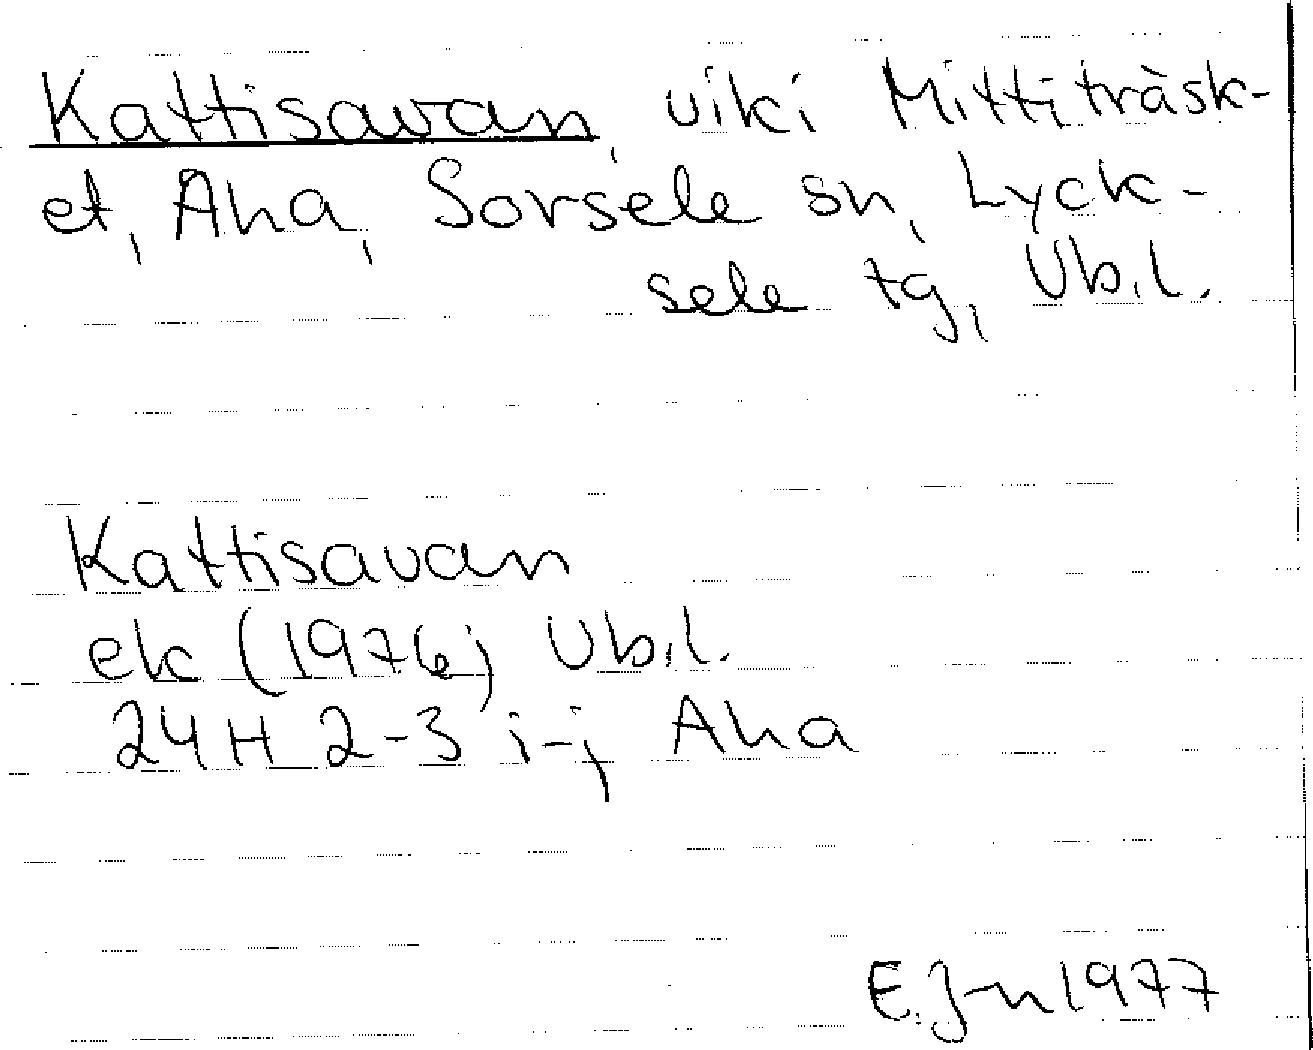 Kattisavan, vik i Mittiträsk-
et, Aha, Sorsele sn, Lyck-
sele tg, Vb.l.
Kattisavan
ek (1976) Vb.l.
24H 2-3 i-j Aha
E.J-n 1977